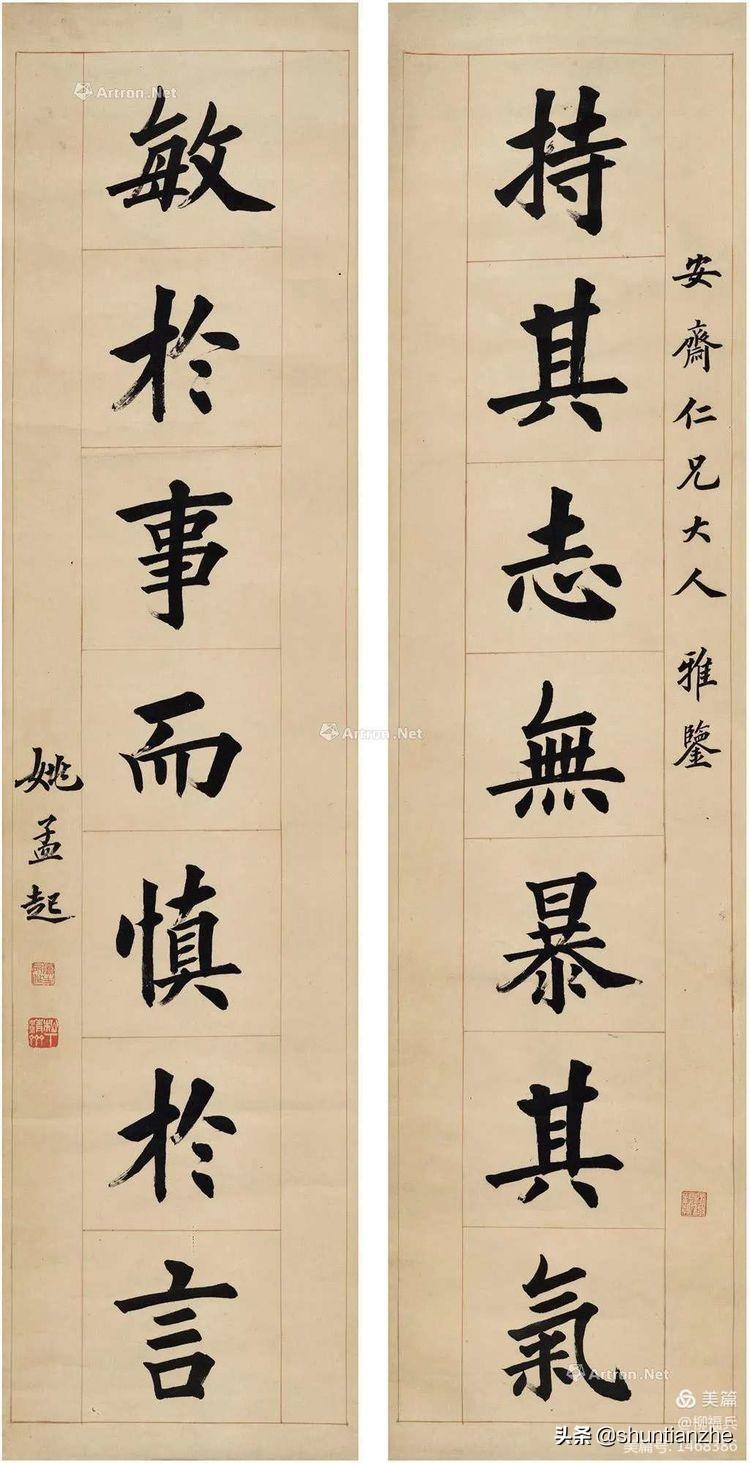 安齋仁兄大人 雅鑒
持其志無暴其氣
敏於事而慎於言
姚孟起
Artron.Net
Artron.Net
Artron.Net
美篇
@柳福兵
美篇号: 1468386
头条 @shuntianzhe